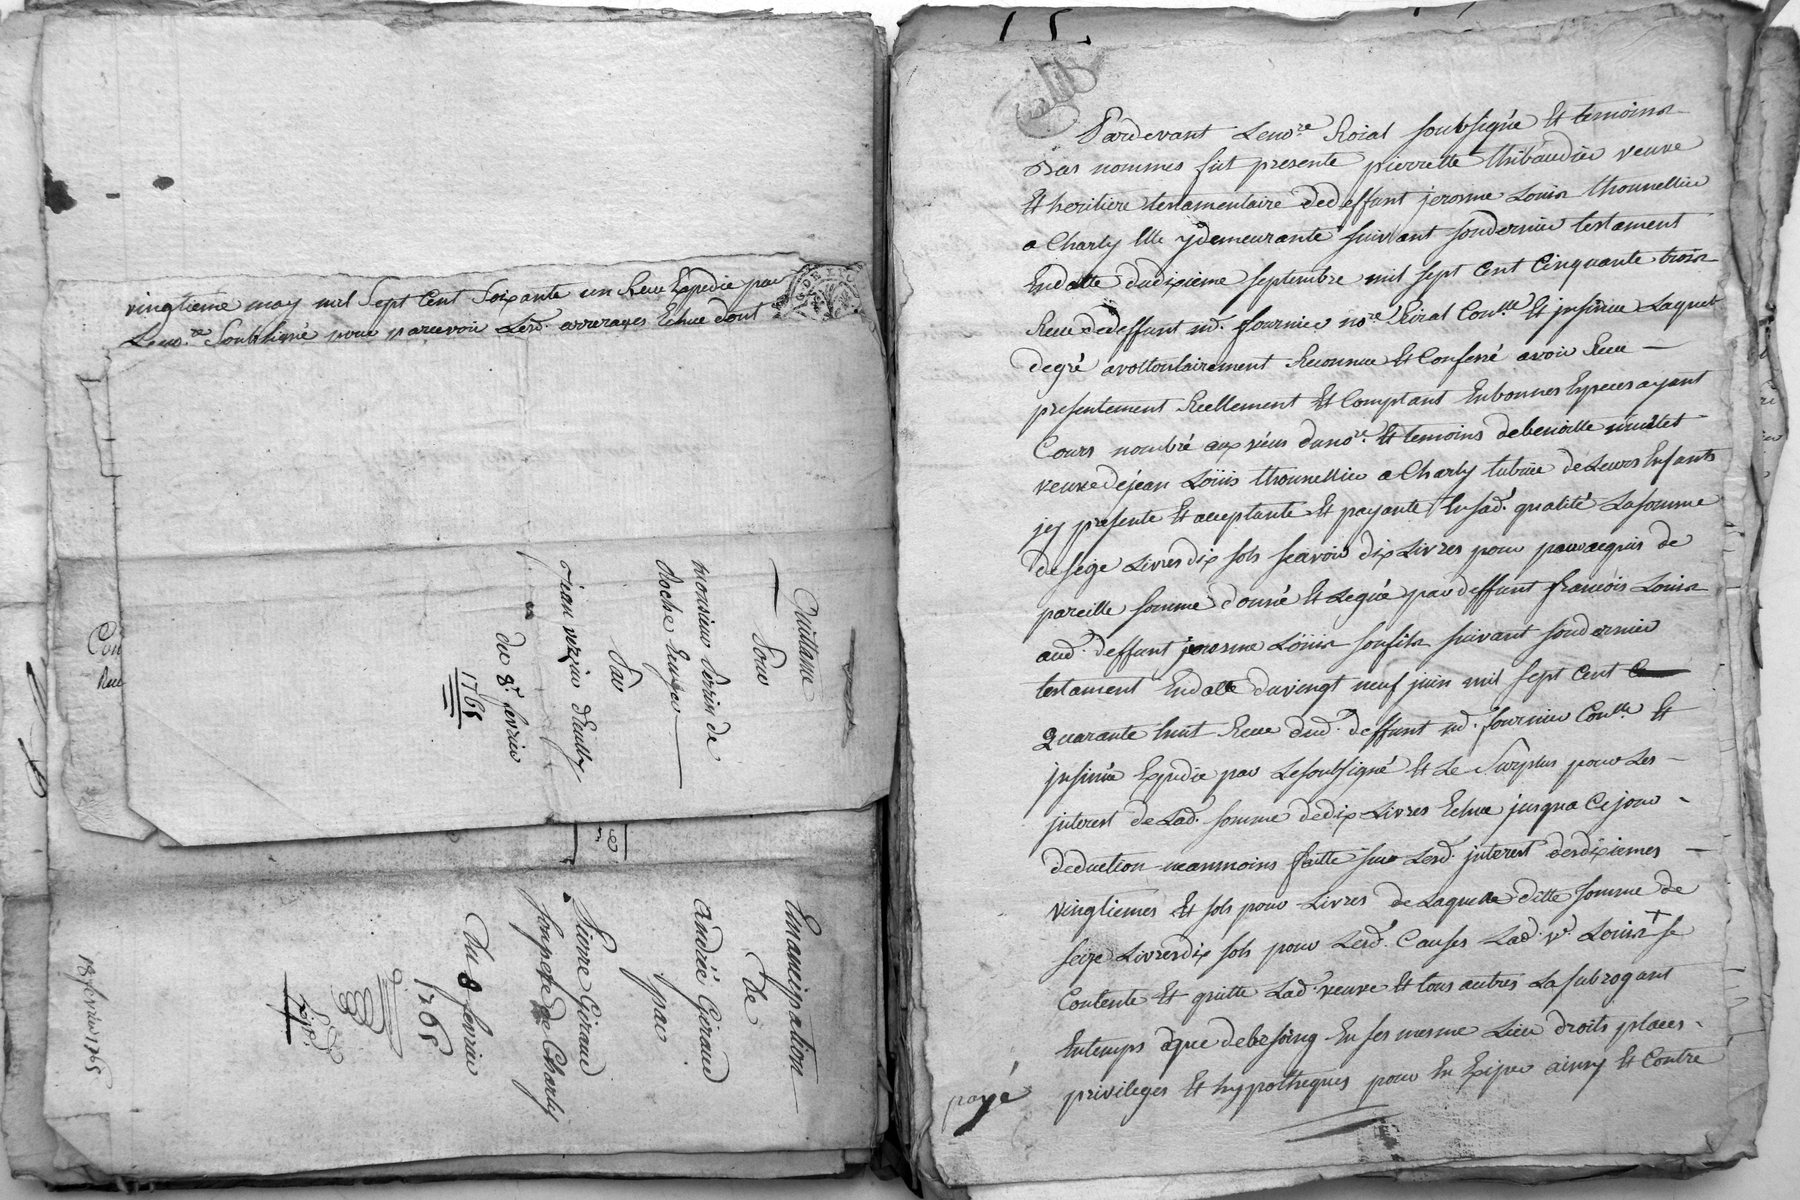 vingtieme may mil Sept Cent Soixante un Receu Expedie par
Leno.re Soubsigné pour parcevoir Lesd. arrerages Echue dont
Con
Receu
Quittance
Pour
monsieur Perrin de
Roche
Par
jean verzier d'eully
du 8.e fevrier
1765
Emancipation
De
andré Giraud
par
Pierre Giraud
son pere De Charly
Du 8 fevrier
1765
Exp.é
18 fevrier 1765
Pardevant Leno.re Roial soubsigné Et temoins
Bas nommes fut presente pierrette thibaudier veuve
Et heritiere testamentaire Dedeffunt jerosme Louis thonnellier
a Charly Elle y demeurante suivant sondernier testament
Endatte dudixieme septembre mil sept Cent Cinquante trois
Receu dedeffunt m.e fournier no.re Roial Con.llé Et jnsinue Laquelle
degré avollontairement Reconnue Et Confessé avoir Receu —
presentement Reellement Et Comptant Enbonnes Especes ayant
Cours nombré aux vëues duno.re Et temoins debenoitte
veuve dejean Löüis thonnellier a Charly tutrice deLeurs Enfants
jcy presente Et acceptante Et payante Ensad. qualité Lasomme
deseize Livres dix sols scavoir dix Livres pour
pareille somme donné Et Legué par deffunt francois Louis
aud. deffunt jerosme Löuis sonfils suivant sondernier
testament Endatte duvingt neuf juin mil sept Cent
Quarante huit Receu dud. deffunt m.e fournier Con.llé Et
jnsinüe Expedie par Lesoubsigné Et Le Surplus pour Les —
jnterest deLad. somme dedix Livres Echue jusqua Cejour -
deduction neanmoins faitte sur Lesd. jnterest desdixiemes —
vingtiemes Et sols pour Livres de Laquelle ditte somme de
seize Livres dix sols pour Lesd. Causes Lad. v.e Louis + se
Contente Et quitte Lad. veuve Et tous autres La subrogant
Entemps que debesoing En ses mesme Lieu droits places -
privileges Et hypotheques pour En Exiper ainsy Et Contre
payé